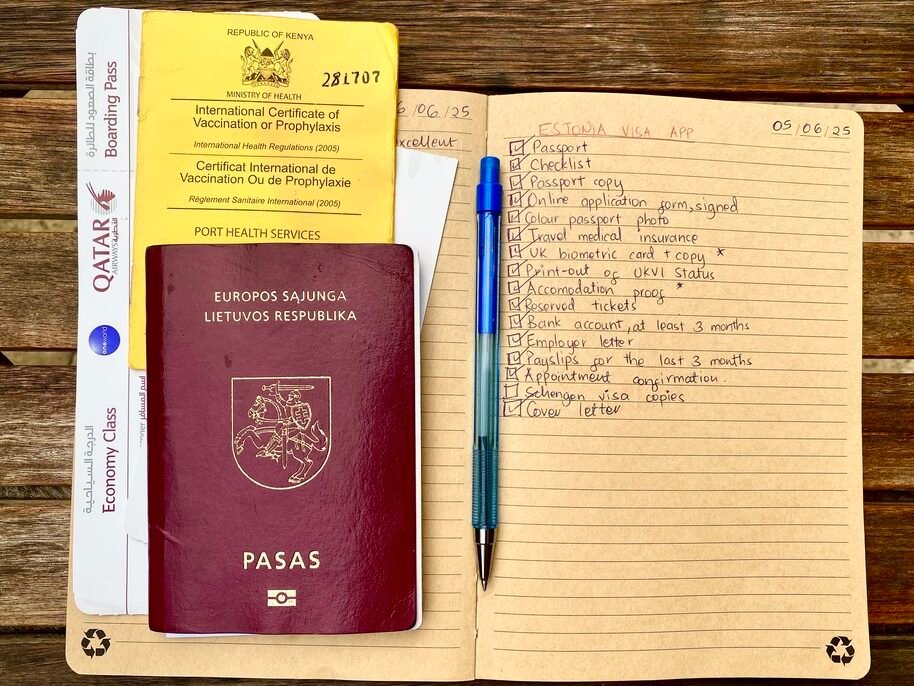 بطاقة الصعود للطائرة
Boarding Pass
QATAR
AIRWAYS القطرية
oneworld
الدرجة السياحية
Economy Class
اسم المسافر
REPUBLIC OF KENYA
281707
MINISTRY OF HEALTH
International Certificate of
Vaccination or Prophylaxis
International Health Regulations (2005)
Certificat International de
Vaccination Ou de Prophylaxie
Règlement Sanitaire International (2005)
PORT HEALTH SERVICES
EUROPOS SĄJUNGA
LIETUVOS RESPUBLIKA
PASAS
/06/25
excellent
ESTONIA VISA APP
05/06/25
Passport
Checklist
Passport copy
Online application form, signed
Colour passport photo
Travel medical insurance
UK biometric card + copy *
Print-out of UKVI status
Accomodation proof *
Reserved tickets
Bank account, at least 3 months
Employer letter
Payslips for the last 3 months
Appointment confirmation.
Schengen visa copies
Cover letter